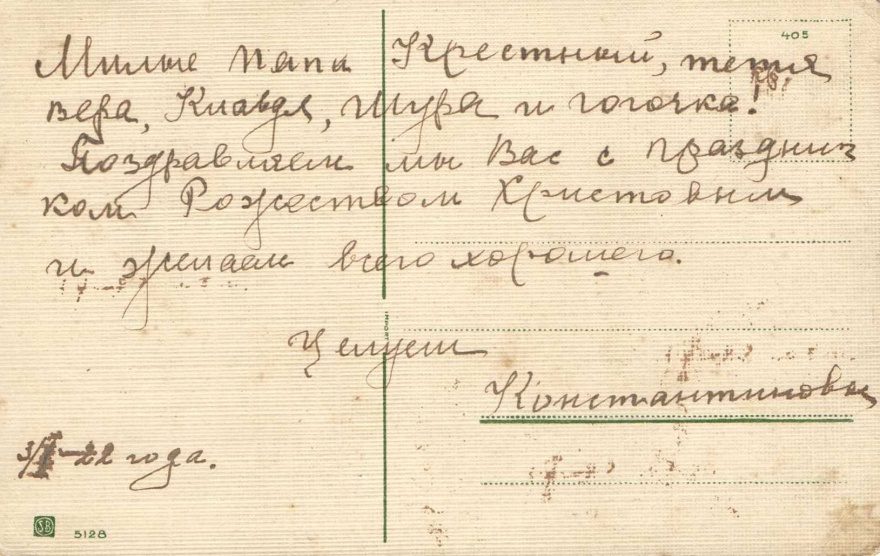 405
Милые папа Крестный, тетия
вера, Клавдя, Шура и гогочка!
Поздравляем мы Вас с праздни
ком Рожеством Христовым
и желаем всего хорошего.
Целуем
Константиновы
3/I-22 года.
SB 5128